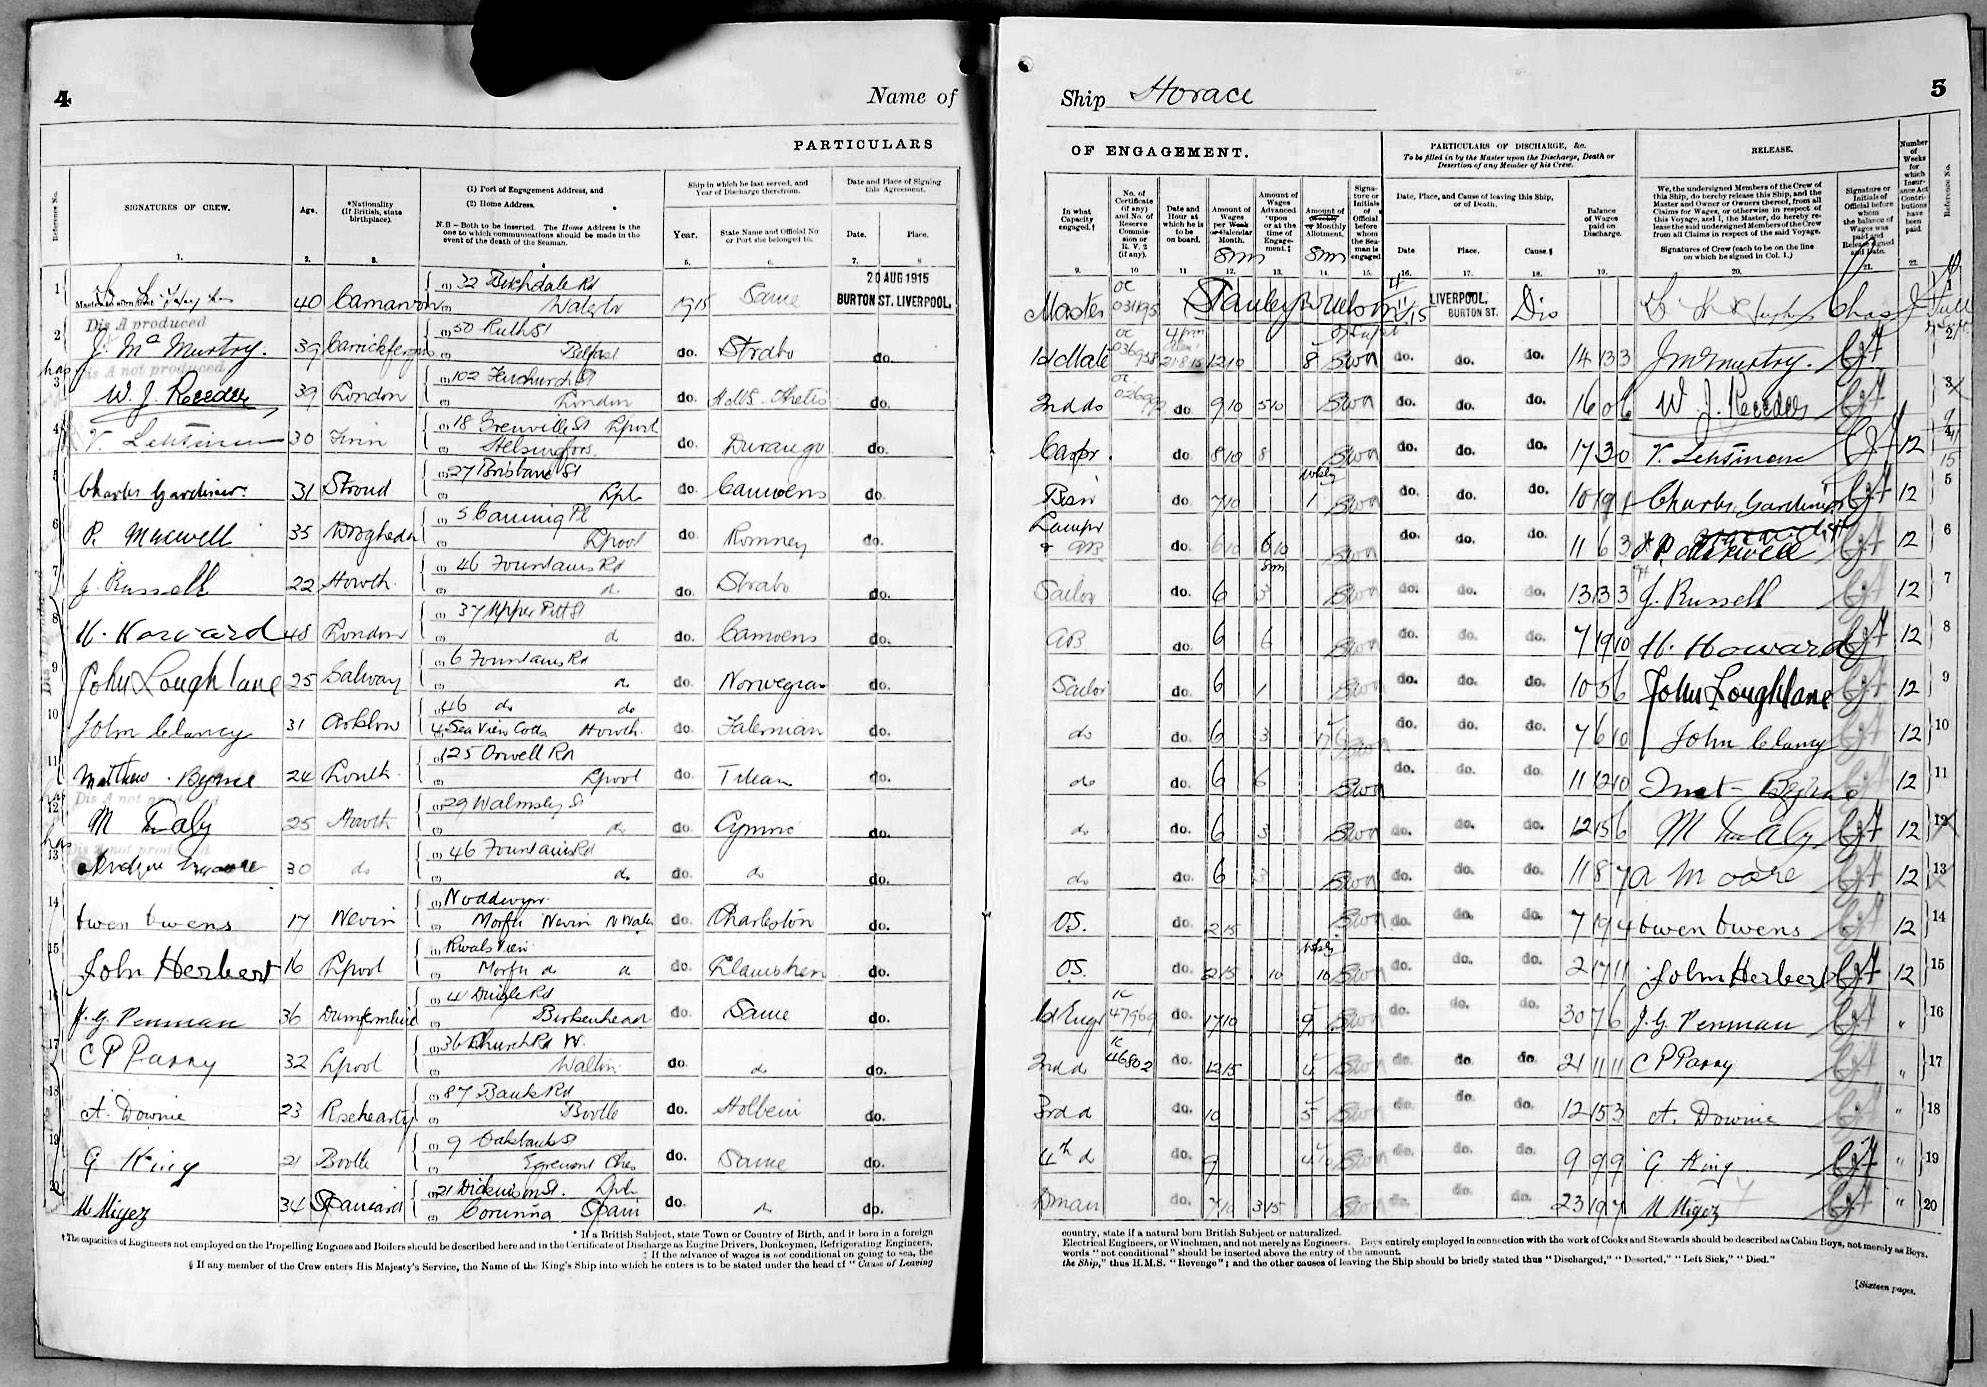 4
Name of
PARTICULARS
Reference No.
SIGNATURES OF CREW.
Age.
*Nationality
(If British, state
birthplace).
(1) Port of Engagement Address, and
(2) Home Address.
N.B.—Both to be inserted. The Home Address is the
one to which communications should be made in the
event of the death of the Seaman.
Ship in which he last served, and
Year of Discharge therefrom.
Year.
State Name and Official No
or Port she belonged to.
Date and Place of Signing
this Agreement.
Date.
Place.
1. 2. 3. 4 5. 6. 7. 8.
1 40 Carnarvon (1) 32 Birchdale Rd
(2) Waterloo 1915 Same 20 AUG 1915
BURTON ST. LIVERPOOL.
Dis A produced
2 J. McMurtry. 39 Carrickfergus (1) 50 Ruth St
(2) Belfast do. Strabo do.
Dis A not produced
3 W. J. Reeder 39 London (1) 102 Fenchurch St
(2) London do. H.M.S. Thetis do.
4 V. Lehtinen 30 Finn (1) 18 Grenville St Lpool
(2) Helsingfors. do. Durango do.
5 Charles Gardiner. 31 Stroud (1) 27 Brisbane St
(2) Lpl. do. Camoens do.
6 P. Maxwell 35 Drogheda (1) 5 Canning Pl
(2) Lpool do. Romney do.
7 J. Russell 22 Howth. (1) 46 Fountains Rd
(2) d do. Strabo do.
8 H. Howard 48 London (1) 37 Upper Pitt St
(2) d do. Camoens do.
9 John Loughlane 25 Galway (1) 6 Fountains Rd
(2) do do. Norwegian do.
10 John Clancy 31 Arklow (1) 46 do do
(2) 4 Sea View Cotts Howth. do. Falernian do.
11 Matthew Byrne 24 Louth. (1) 125 Orwell Rd
(2) Lpool do. Titian do.
Dis A not produced
12 M Daly 25 Howth (1) 29 Walmsley St
(2) do do. Cymric do.
Dis A not produced.
13 Andrew Moore 30 do (1) 46 Fountains Rd
(2) do do. do do.
14 Owen Owens 17 Nevin (1)
(2) Morfa Nevin N Wales do. Charleston do.
15 John Herbert 16 Lpool (1) Rivals View
(2) Morfa d d do. do.
16 J. G. Penman 36 (1) 41 Dingle Rd
(2) Birkenhead do. Same do.
17 C P Parry 32 Lpool (1) 36 Church Rd W.
(2) Walton do. do do.
18 A. Downie 23 Rosehearty (1) 87 Bank Rd
(2) Bootle do. Holbein do.
19 G King 21 Bootle (1) 9 Oakbank St
(2) Egremont Ches do. Same do.
20 M Miguez 34 Spaniard (1) 21 Dickinson St. Lpl.
(2) Corunna Spain do. do do.
* If a British Subject, state Town or Country of Birth, and if born in a foreign
† The capacities of Engineers not employed on the Propelling Engines and Boilers should be described here and in the Certificate of Discharge as Engine Drivers, Donkeymen, Refrigerating Engineers,
‡ If the advance of wages is not conditional on going to sea, the
§ If any member of the Crew enters His Majesty's Service, the Name of the King's Ship into which he enters is to be stated under the head of "Cause of Leaving
Ship Horace
5
OF ENGAGEMENT.
In what
Capacity
engaged.†
No. of
Certificate
(if any)
and No. of
Reserve
Commis-
sion or
R. V. 2
(if any).
Date and
Hour at
which he is
to be
on board.
Amount of
Wages
per Week
or Calendar
Month.
Amount of
Wages
Advanced
upon
or at the
time of
Engage-
ment.‡
Amount of
Weekly
or Monthly
Allotment.
Signa-
ture or
Initials
of
Official
before
whom
the Sea-
man is
engaged
PARTICULARS OF DISCHARGE, &c.
To be filled in by the Master upon the Discharge, Death or
Desertion of any Member of his Crew.
Date, Place, and Cause of leaving this Ship,
or of Death.
Date
Place.
Cause.§
Balance
of Wages
paid on
Discharge.
RELEASE.
We, the undersigned Members of the Crew of
this Ship, do hereby release this Ship, and the
Master and Owner or Owners thereof, from all
Claims for Wages, or otherwise in respect of
this Voyage, and I, the Master, do hereby re-
lease the said undersigned Members of the Crew
from all Claims in respect of the said Voyage.
Signatures of Crew (each to be on the line
on which he signed in Col. 1.)
Signature or
Initials of
Official before
whom
the balance of
Wages was
paid and
Release signed
and Date.
Number
of
Weeks
for
which
Insur-
ance Act
Contri-
butions
have
been
paid.
Reference No.
9. 10 11 12. 13. 14. 15. 16. 17. 18. 19. 20. 21. 22
Master OC 031195 LIVERPOOL,
BURTON ST. Dis 1
1st Mate OC 036958 12 10 8 do. do. do. 14 13 3 J McMurtry. 2
2nd do OC do. 9 10 5 10 do. do. do. 16 0 6 W. J. Reeder 3
Carpr. do. 8 10 8 do. do. do. 17 3 0 V. Lehtinen 12 4
Bosn do. 7 10 weekly 1 do. do. do. Charles Gardiner 12 5
Lampr
& AB do. 6 10 6 10 do. do. do. 11 6 3 P. Maxwell 12 6
Sailor do. 6 3 do. do. do. 13 13 3 J. Russell 12 7
AB do. 6 6 do. do. do. 7 19 10 H. Howard 12 8
Sailor do. 6 1 do. do. do. 10 5 6 John Loughlane 12 9
do do. 6 3 do. do. do. 7 6 10 John Clancy 12 10
do do. 6 6 do. do. do. 11 12 10 Mat Byrne 12 11
do do. 6 3 do. do. do. 12 15 6 M Daly 12 12
do do. 6 3 do. do. do. 11 8 7 A Moore 12 13
O.S. do. 2 15 do. do. do. 7 19 4 Owen Owens 12 14
O.S. do. 2 15 10 weekly 10 do. do. do. 2 17 11 John Herbert 12 15
1st Engr 1c 47969 do. 17 10 9 do. do. do. 30 7 6 J. G. Penman " 16
2nd d 1c 46802 do. 12 15 do. do. do. 21 11 11 C P Parry " 17
3rd d do. 10 5 do. do. do. 12 15 3 A. Downie " 18
4th d do. 9 do. do. do. 9 9 9 G King " 19
Dman do. 7 10 3 15 do. do. do. 23 19 7 M Miguez " 20
country, state if a natural born British Subject or naturalized.
Electrical Engineers, or Winchmen, and not merely as Engineers. Boys entirely employed in connection with the work of Cooks and Stewards should be described as Cabin Boys, not merely as Boys.
words "not conditional" should be inserted above the entry of the amount.
the Ship," thus H.M.S. "Revenge"; and the other causes of leaving the Ship should be briefly stated thus "Discharged," "Deserted," "Left Sick," "Died."
[Sixteen pages.